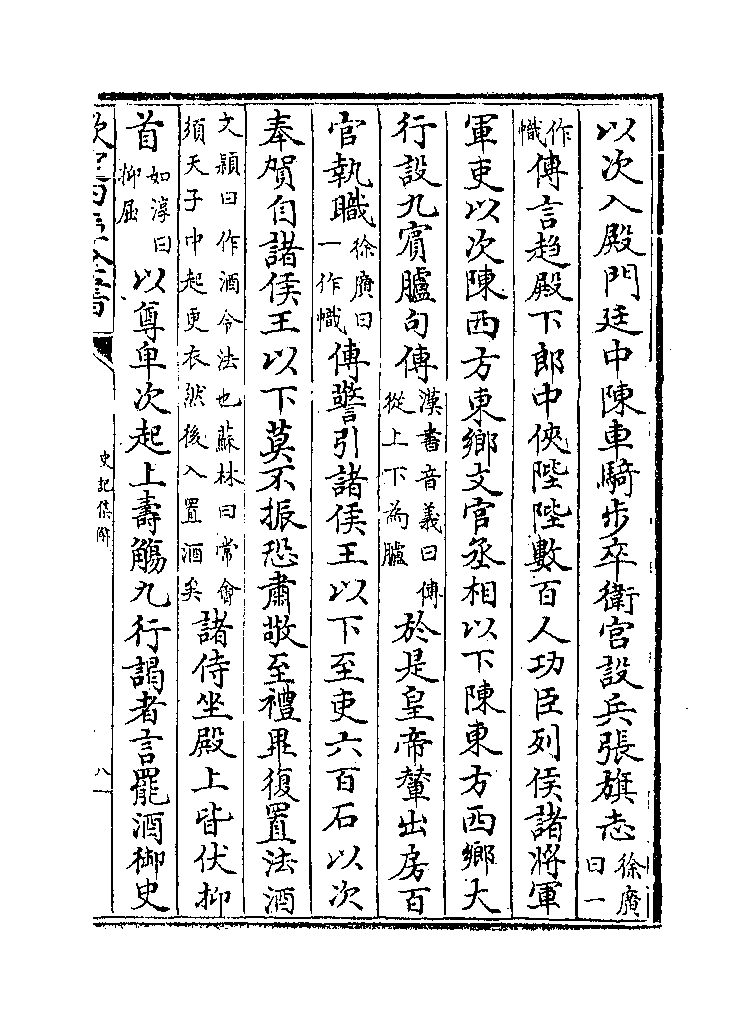 以次入殿門廷中陳車騎步卒衛宫設兵張旗志徐廣曰一
作幟傳言趨殿下郎中俠陛陛數百人功臣列侯諸將軍
軍吏以次陳西方東鄉文官丞相以下陳東方西鄉大
行設九賓臚句傳漢書音義曰傳從上下為臚於是皇帝輦出房百
官執職徐廣曰一作幟傳警引諸侯王以下至吏六百石以次
奉賀自諸侯王以下莫不振恐肅敬至禮畢復置法酒
文穎曰作酒令法也蘇林曰常會須天子中起更衣然後入置酒矣諸侍坐殿上皆伏抑
首如淳曰抑屈以尊卑次起上壽觴九行謁者言罷酒御史
史記集解
八